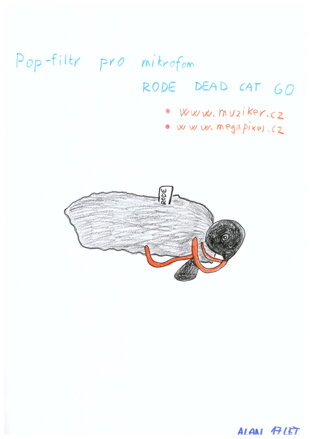 Pop-filtr pro mikrofom
RODE DEAD CAT GO
• www.muziker.cz
• www.megapixel.cz
RODE
ALAN 17 LET